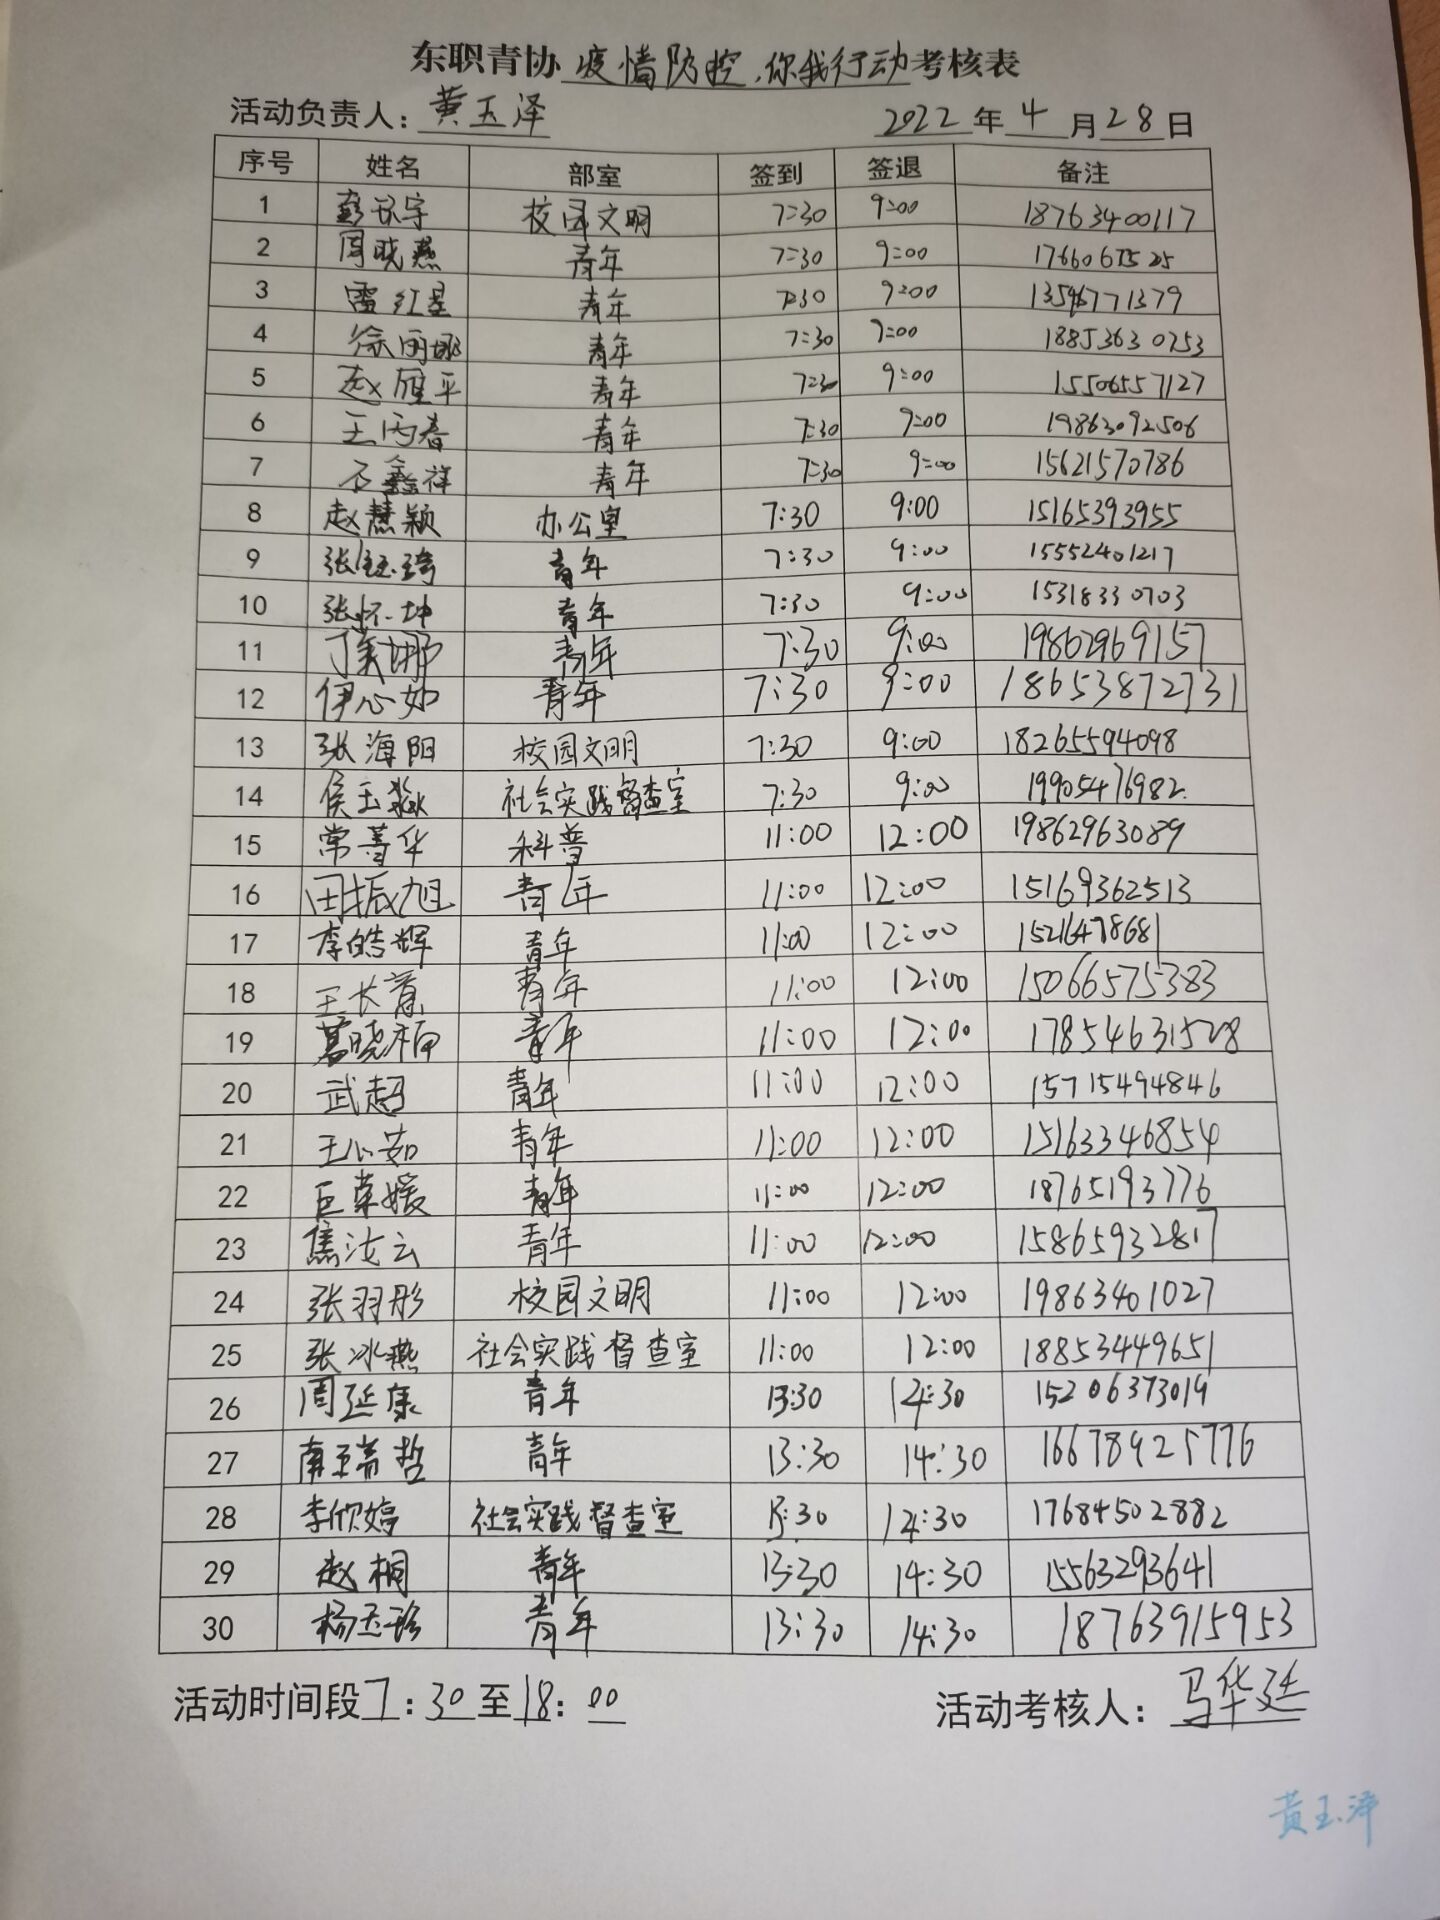 东职青协 疫情防控,你我行动 考核表
活动负责人: 黄玉泽 2022 年 4 月 28 日
序号 姓名 部室 签到 签退 备注
1 彭环宇 校园文明 7:30 9:00 18763400117
2 周晓燕 青年 7:30 9:00 17660675525
3 雷红星 青年 7:30 9:00 13596771379
4 徐丽娜 青年 7:30 9:00 18853630253
5 赵雁平 青年 7:30 9:00 15506557127
6 王丙春 青年 7:30 9:00 19863092506
7 石鑫祥 青年 7:30 9:00 15621570786
8 赵慧颖 办公室 7:30 9:00 15165393955
9 张钰琦 青年 7:30 9:00 15552401217
10 张怀坤 青年 7:30 9:00 15318330703
11 丁美娜 青年 7:30 9:00 19862969157
12 伊心如 青年 7:30 9:00 18653872731
13 张海阳 校园文明 7:30 9:00 18265594098
14 侯玉淼 社会实践督查室 7:30 9:00 19905476982
15 常菁华 科普 11:00 12:00 19862963089
16 田振旭 青年 11:00 12:00 15169362513
17 李皓辉 青年 11:00 12:00 15216478681
18 王长 青年 11:00 12:00 15066575383
19 葛晓楠 青年 11:00 12:00 17854631528
20 武超 青年 11:00 12:00 15715494846
21 王心茹 青年 11:00 12:00 15163346854
22 巨荣媛 青年 11:00 12:00 18765193776
23 焦汝云 青年 11:00 12:00 15865932817
24 张羽彤 校园文明 11:00 12:00 19863401027
25 张冰燕 社会实践督查室 11:00 12:00 18853449651
26 周延康 青年 13:30 14:30 15206373019
27 南瑞哲 青年 13:30 14:30 16678925776
28 李欣婷 社会实践督查室 13:30 14:30 17684502882
29 赵桐 青年 13:30 14:30 15563293641
30 杨玉珍 青年 13:30 14:30 18763915953
活动时间段 7:30 至 18:00 活动考核人: 马华廷
黄玉泽